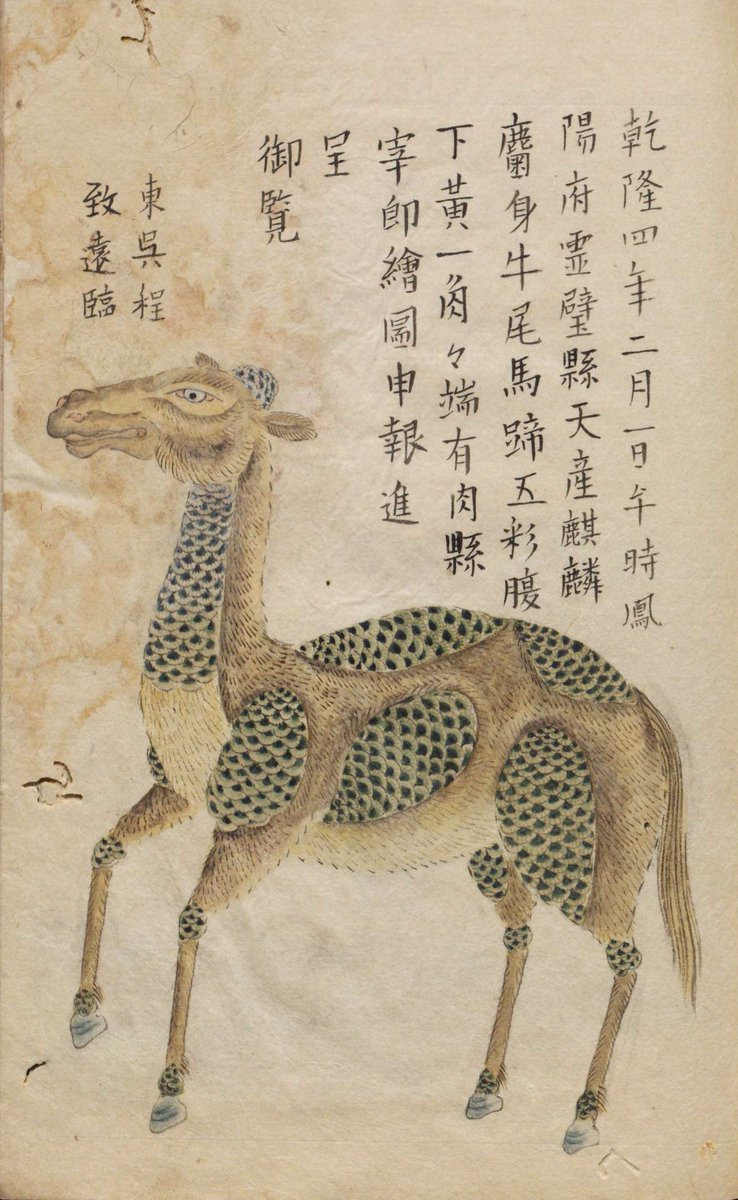 乾隆四年二月一日午時鳳
陽府霊璧縣天産麒麟
麕身牛尾馬蹄五彩腹
下黃一角々端有肉縣
宰即繪圖申報進
呈
御覽
東吳程
致遠臨